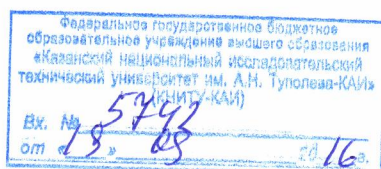 Федеральное государственное бюджетное
образовательное учреждение высшего образования
«Казанский национальный исследовательский
технический университет им. А.Н. Туполева-КАИ»
(КНИТУ-КАИ)
Вх. №
от « » 20 16 г.